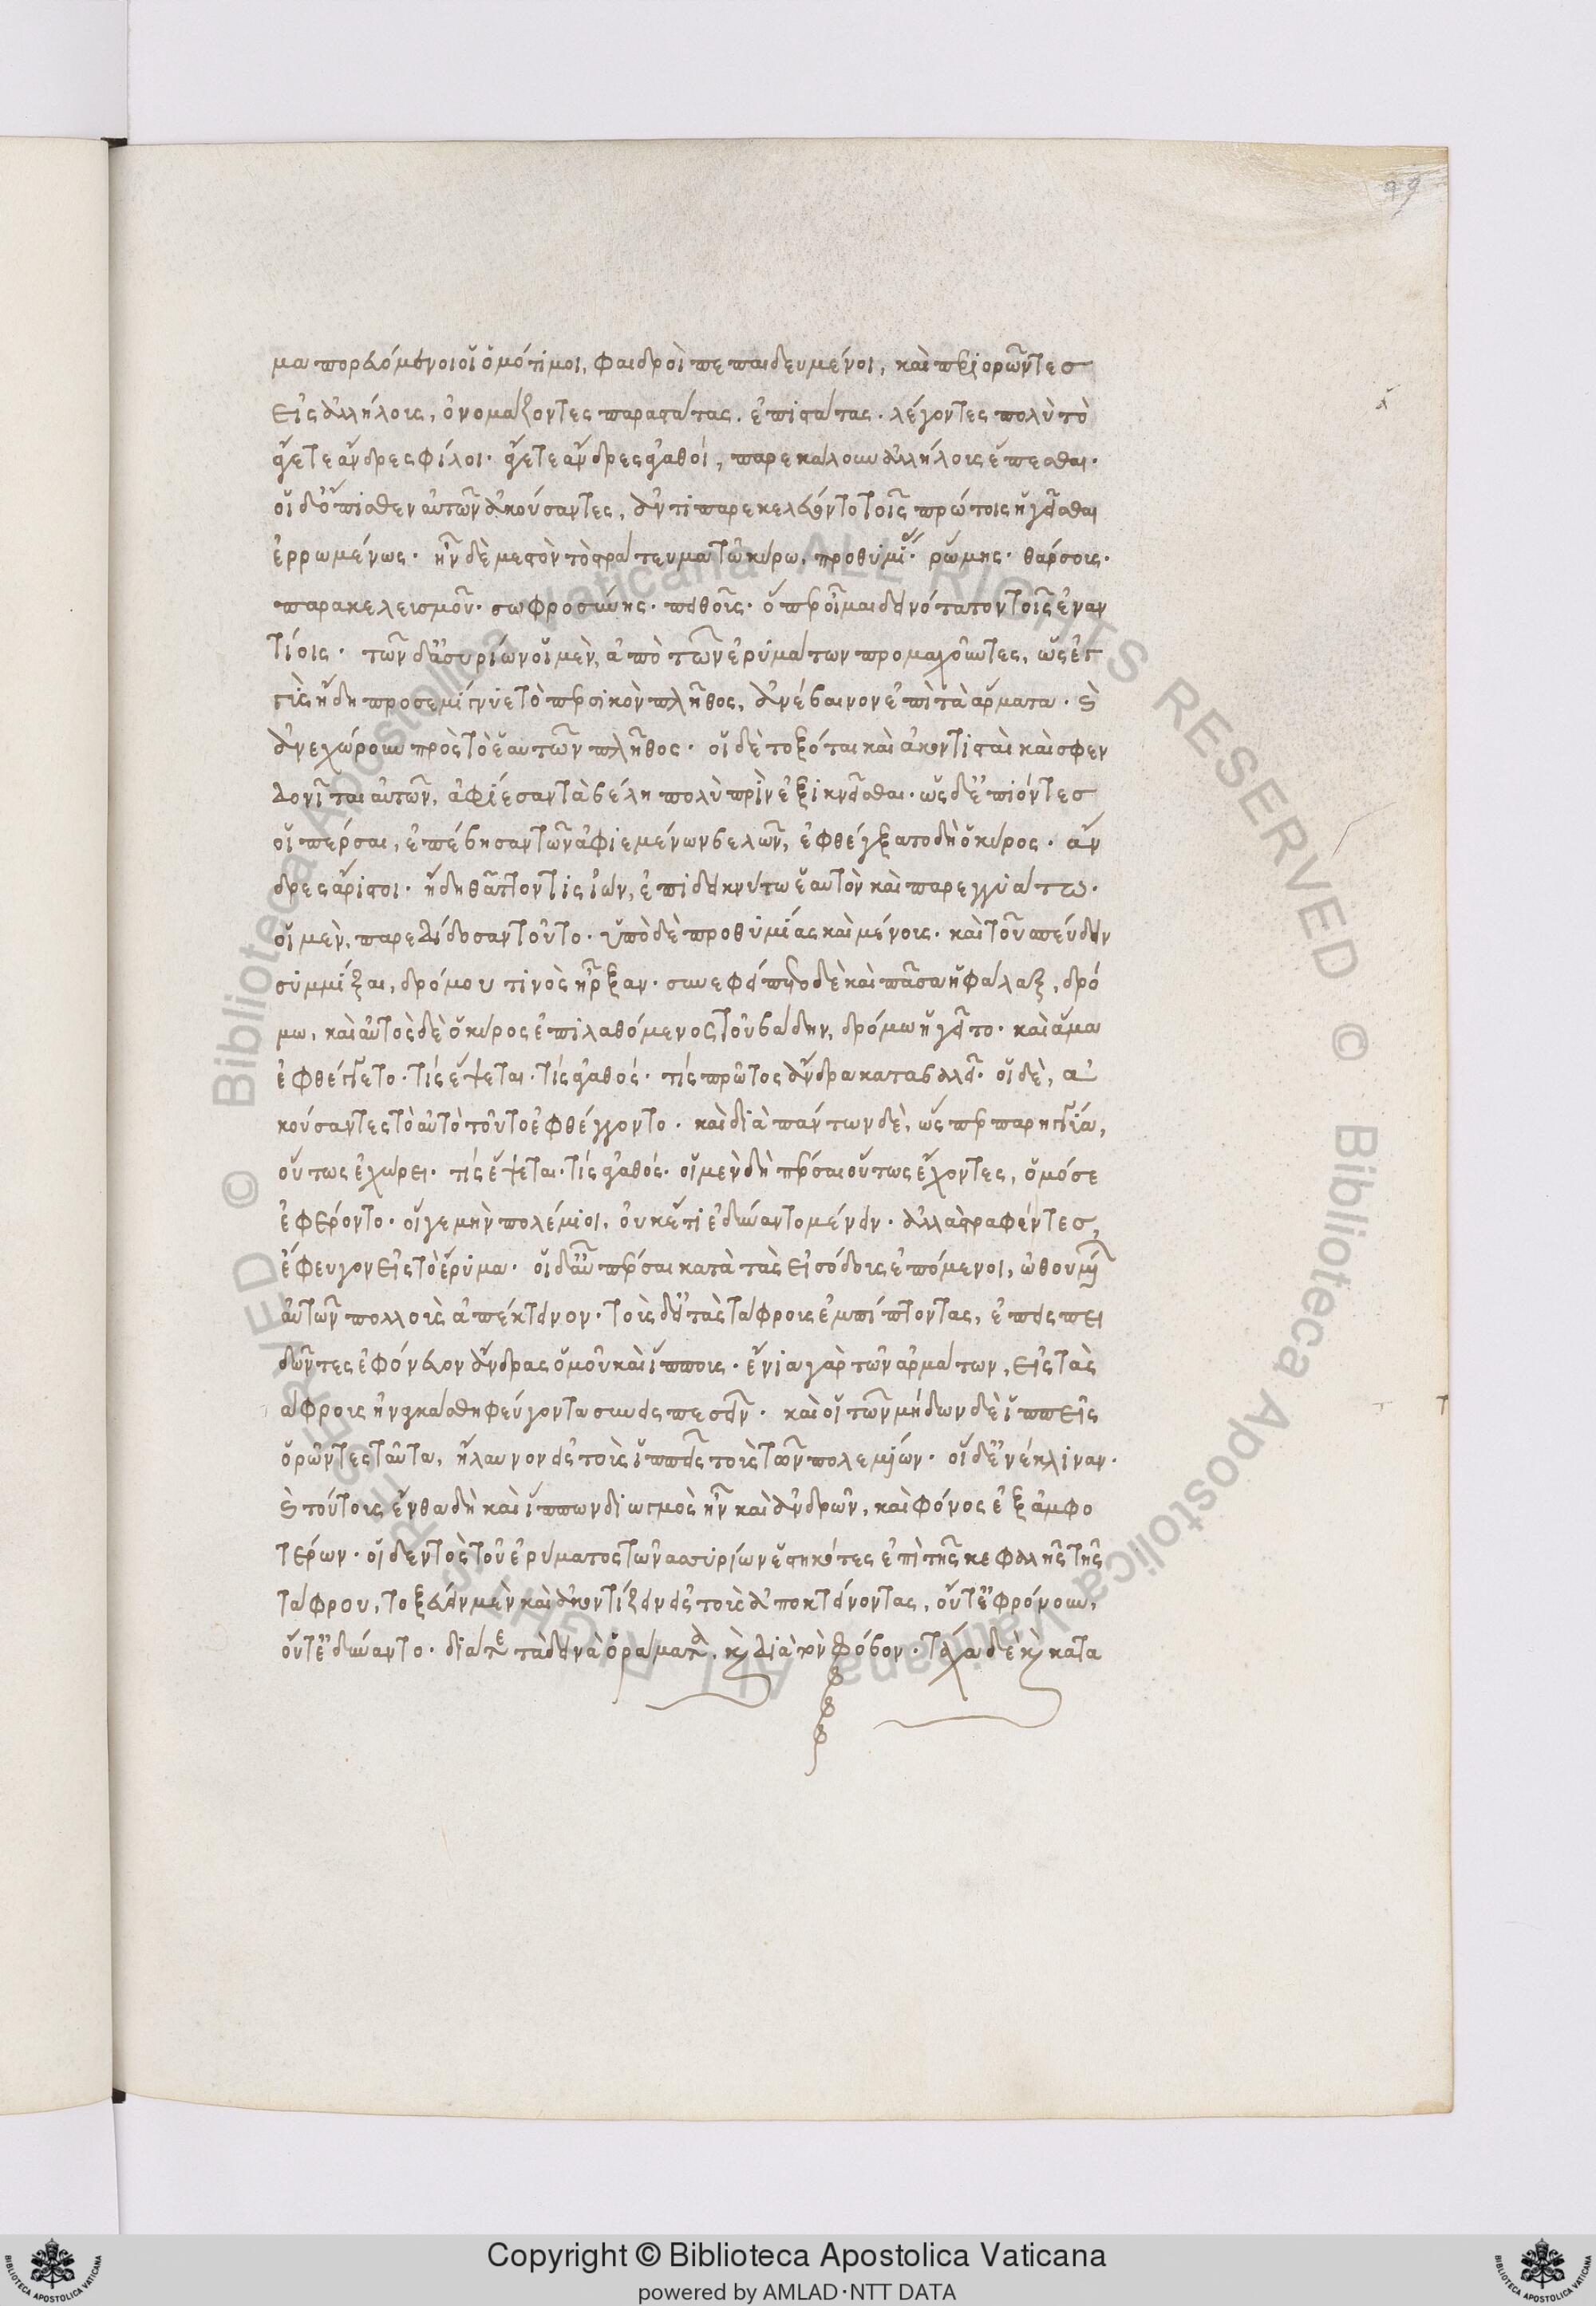 99
μα πορευόμενοι οἱ ὁμότιμοι, φαιδροὶ πεπαιδευμένοι, καὶ περιορῶντες
εἰς ἀλλήλους, ὀνομάζοντες παραστάτας. ἐπιστάτας. λέγοντες πολὺ τὸ
ἄγετε ἄνδρες φίλοι. ἄγετε ἄνδρες ἀγαθοί, παρεκάλουν ἀλλήλους ἕπεσθαι.
οἱ δ' ὄπισθεν αὐτῶν ἀκούσαντες, ἀντιπαρεκελεύοντο τοῖς πρώτοις ἡγεῖσθαι
ἐρρωμένως. ἦν δὲ μεστὸν τὸ στράτευμα τῶ κύρω, προθυμίας. ῥώμης. θάρσους.
παρακελεισμοῦ. σωφροσύνης. πειθοῦς. ὅπερ οἶμαι δεινότατον τοῖς ἐναν
τίοις. τῶν δ' ἀσυρίων οἱ μὲν, ἀπὸ τῶν ἐρυμάτων προμαχοῦντες, ὡς ἐγ
γὺς ἤδη προσεμίγνυε τὸ περσικὸν πλῆθος, ἀνέβαινον ἐπὶ τὰ ἅρματα. καὶ
ἀνεχώρουν πρὸς τὸ ἑαυτῶν πλῆθος. οἱ δὲ τοξόται καὶ ἀκοντισταὶ καὶ σφεν
δονῆται αὐτῶν, ἀφίεσαν τὰ βέλη πολὺ πρὶν ἐξικνεῖσθαι. ὡς δ' ἐπιόντες
οἱ πέρσαι, ἐπέβησαν τῶν ἀφιεμένων βελῶν, ἐφθέγξατο δὴ ὁ κῦρος. ἄν
δρες ἄριστοι. ἤδη θᾶττον τὶς ἰών, ἐπιδεικνύτω ἑαυτὸν καὶ παρεγγυάτω.
οἱ μὲν, παρεδίδοσαν τοῦτο. ὑπὸ δὲ προθυμίας καὶ μένους. καὶ τοῦ σπεύδειν
συμμίξαι, δρόμου τινὸς ἦρξαν. συνεφείπετο δὲ καὶ πᾶσα ἡ φάλαξ, δρό
μω, καὶ αὐτὸς δὲ ὁ κῦρος ἐπιλαθόμενος τοῦ βάδην, δρόμω ἡγεῖτο. καὶ ἅμα
ἐφθέγγετο. τίς ἕψεται. τίς ἀγαθός. τίς πρῶτος ἄνδρα καταβαλεῖ. οἱ δὲ, ἀ
κούσαντες τὸ αὐτὸ τοῦτο ἐφθέγγοντο. καὶ διὰ πάντων δὲ, ὥσπερ παρηγγύα,
οὕτως ἐχώρει. τίς ἕψεται. τίς ἀγαθός. οἱ μὲν δὴ πέρσαι οὕτως ἔχοντες, ὁμόσε
ἐφέροντο. οἵ γε μὴν πολέμιοι, οὐκέτι ἐδύναντο μένειν. ἀλλὰ στραφέντες,
ἔφευγον εἰς τὸ ἔρυμα. οἱ δ' αὖ πέρσαι κατὰ τὰς εἰσόδους ἑπόμενοι, ὠθουμένων
αὐτῶν πολλοὺς ἀπέκτεινον. τοὺς δ' εἰς τὰς τάφρους ἐμπίπτοντας, ἐπεισπει
δῶντες ἐφόνευον ἄνδρας ὁμοῦ καὶ ἵππους. ἔνια γὰρ τῶν ἁρμάτων, εἰς τὰς
άφρους ἠναγκάσθη φεύγοντα συνεισπεσεῖν. καὶ οἱ τῶν μήδων δὲ ἱππεῖς
ὁρῶντες ταῦτα, ἤλαυνον εἰς τοὺς ἱππεῖς τοὺς τῶν πολεμίων. οἱ δ' ἐνέκλιναν.
καὶ τούτους ἔνθα δὴ καὶ ἵππων διωγμὸς ἦν καὶ ἀνδρῶν, καὶ φόνος ἐξ ἀμφο
τέρων. οἱ δ' ἐντὸς τοῦ ἐρύματος τῶν ἀσσυρίων ἑστηκότες ἐπὶ τῆς κεφαλῆς τῆς
τάφρου, τοξεύειν μὲν καὶ ἀκοντίζειν εἰς τοὺς ἀποκτείνοντας, οὔτ' ἐφρόνουν,
οὔτ' ἐδύναντο. διά τε τὰ δεινὰ ὁράματα, καὶ διὰ τὸν φόβον. τάχα δὲ καὶ κατα
© Biblioteca Apostolica Vaticana ALL RIGHTS RESERVED © Biblioteca Apostolica Vaticana ALL RIGHTS RESERVED
Copyright © Biblioteca Apostolica Vaticana
powered by AMLAD·NTT DATA
BIBLIOTECA APOSTOLICA VATICANA
BIBLIOTECA APOSTOLICA VATICANA